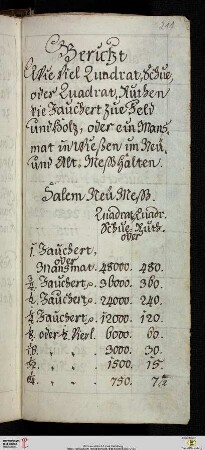 211
Bericht
Wie viel Quadrat, Schue,
oder Quadrat, Ruthen
die Jauchert zue Feld
und Holz, oder ein Mans,
mat in Wießen im Neü,
und Alt, Mess halten.
Salem Neü Mess.
Quadrat Quadr.
Schue Ruth.
oder
1. Jauchert,
oder
Mansmat. 48000. 480.
Jauchert, 36000. 360.
Jauchert, 24000. 240.
Jauchert, 12000. 120.
oder 1/2 Vierl. 6000. 60.
3000. 30.
1500. 15.
750. 7 1/2